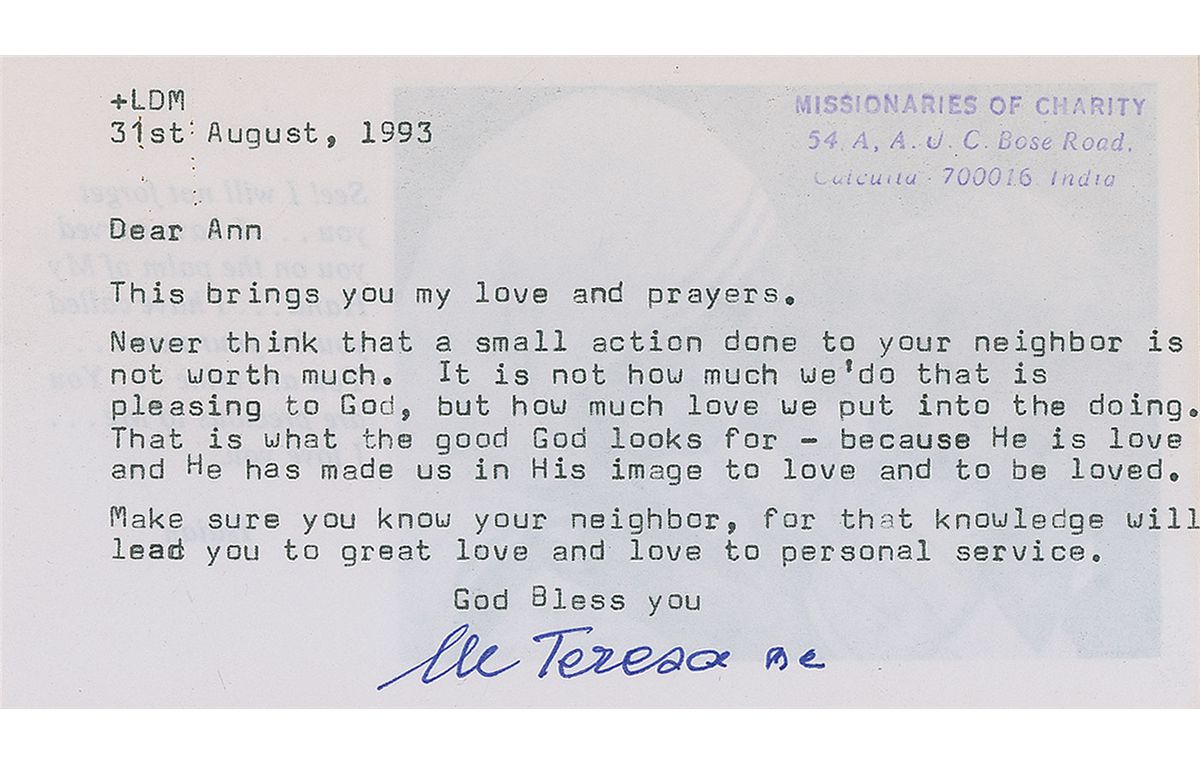 +LDM
31st August, 1993
MISSIONARIES OF CHARITY
54 A, A. J. C. Bose Road,
Calcutta - 700016 India
Dear Ann
This brings you my love and prayers.
Never think that a small action done to your neighbor is
not worth much. It is not how much we'do that is
pleasing to God, but how much love we put into the doing.
That is what the good God looks for - because He is love
and He has made us in His image to love and to be loved.
Make sure you know your neighbor, for that knowledge will
lead you to great love and love to personal service.
God Bless you
M Teresa mc
See! I will not forget
you on the palm of My